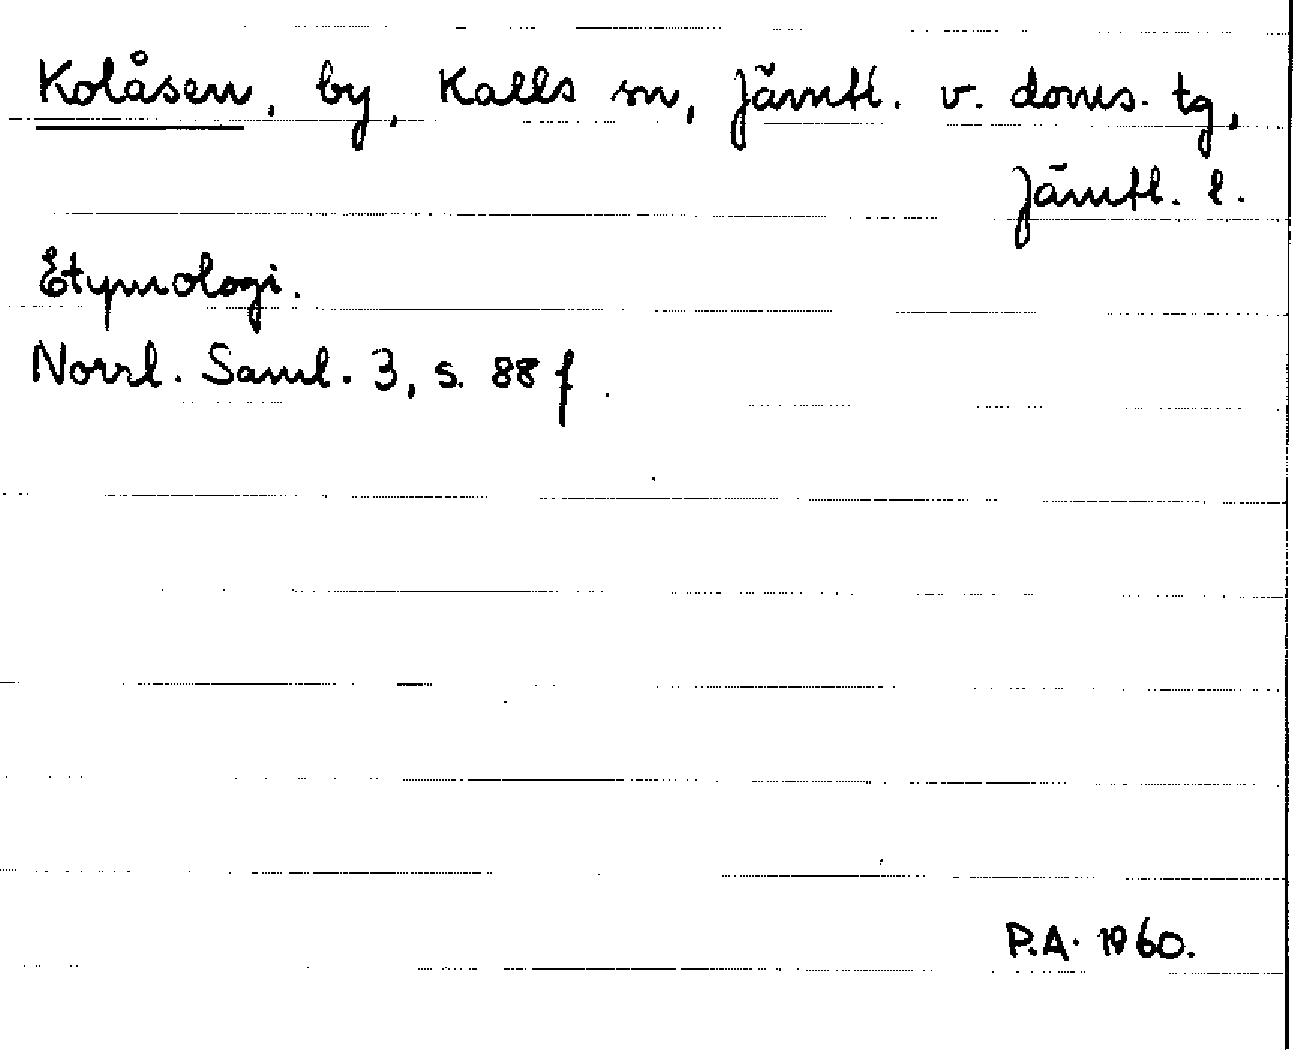 Kolåsen, by, Kalls sn, Jämtl. v. doms. tg,
Jämtl. l.
Etymologi.
Norrl. Saml. 3, s. 88 f.
P.A. 1960.